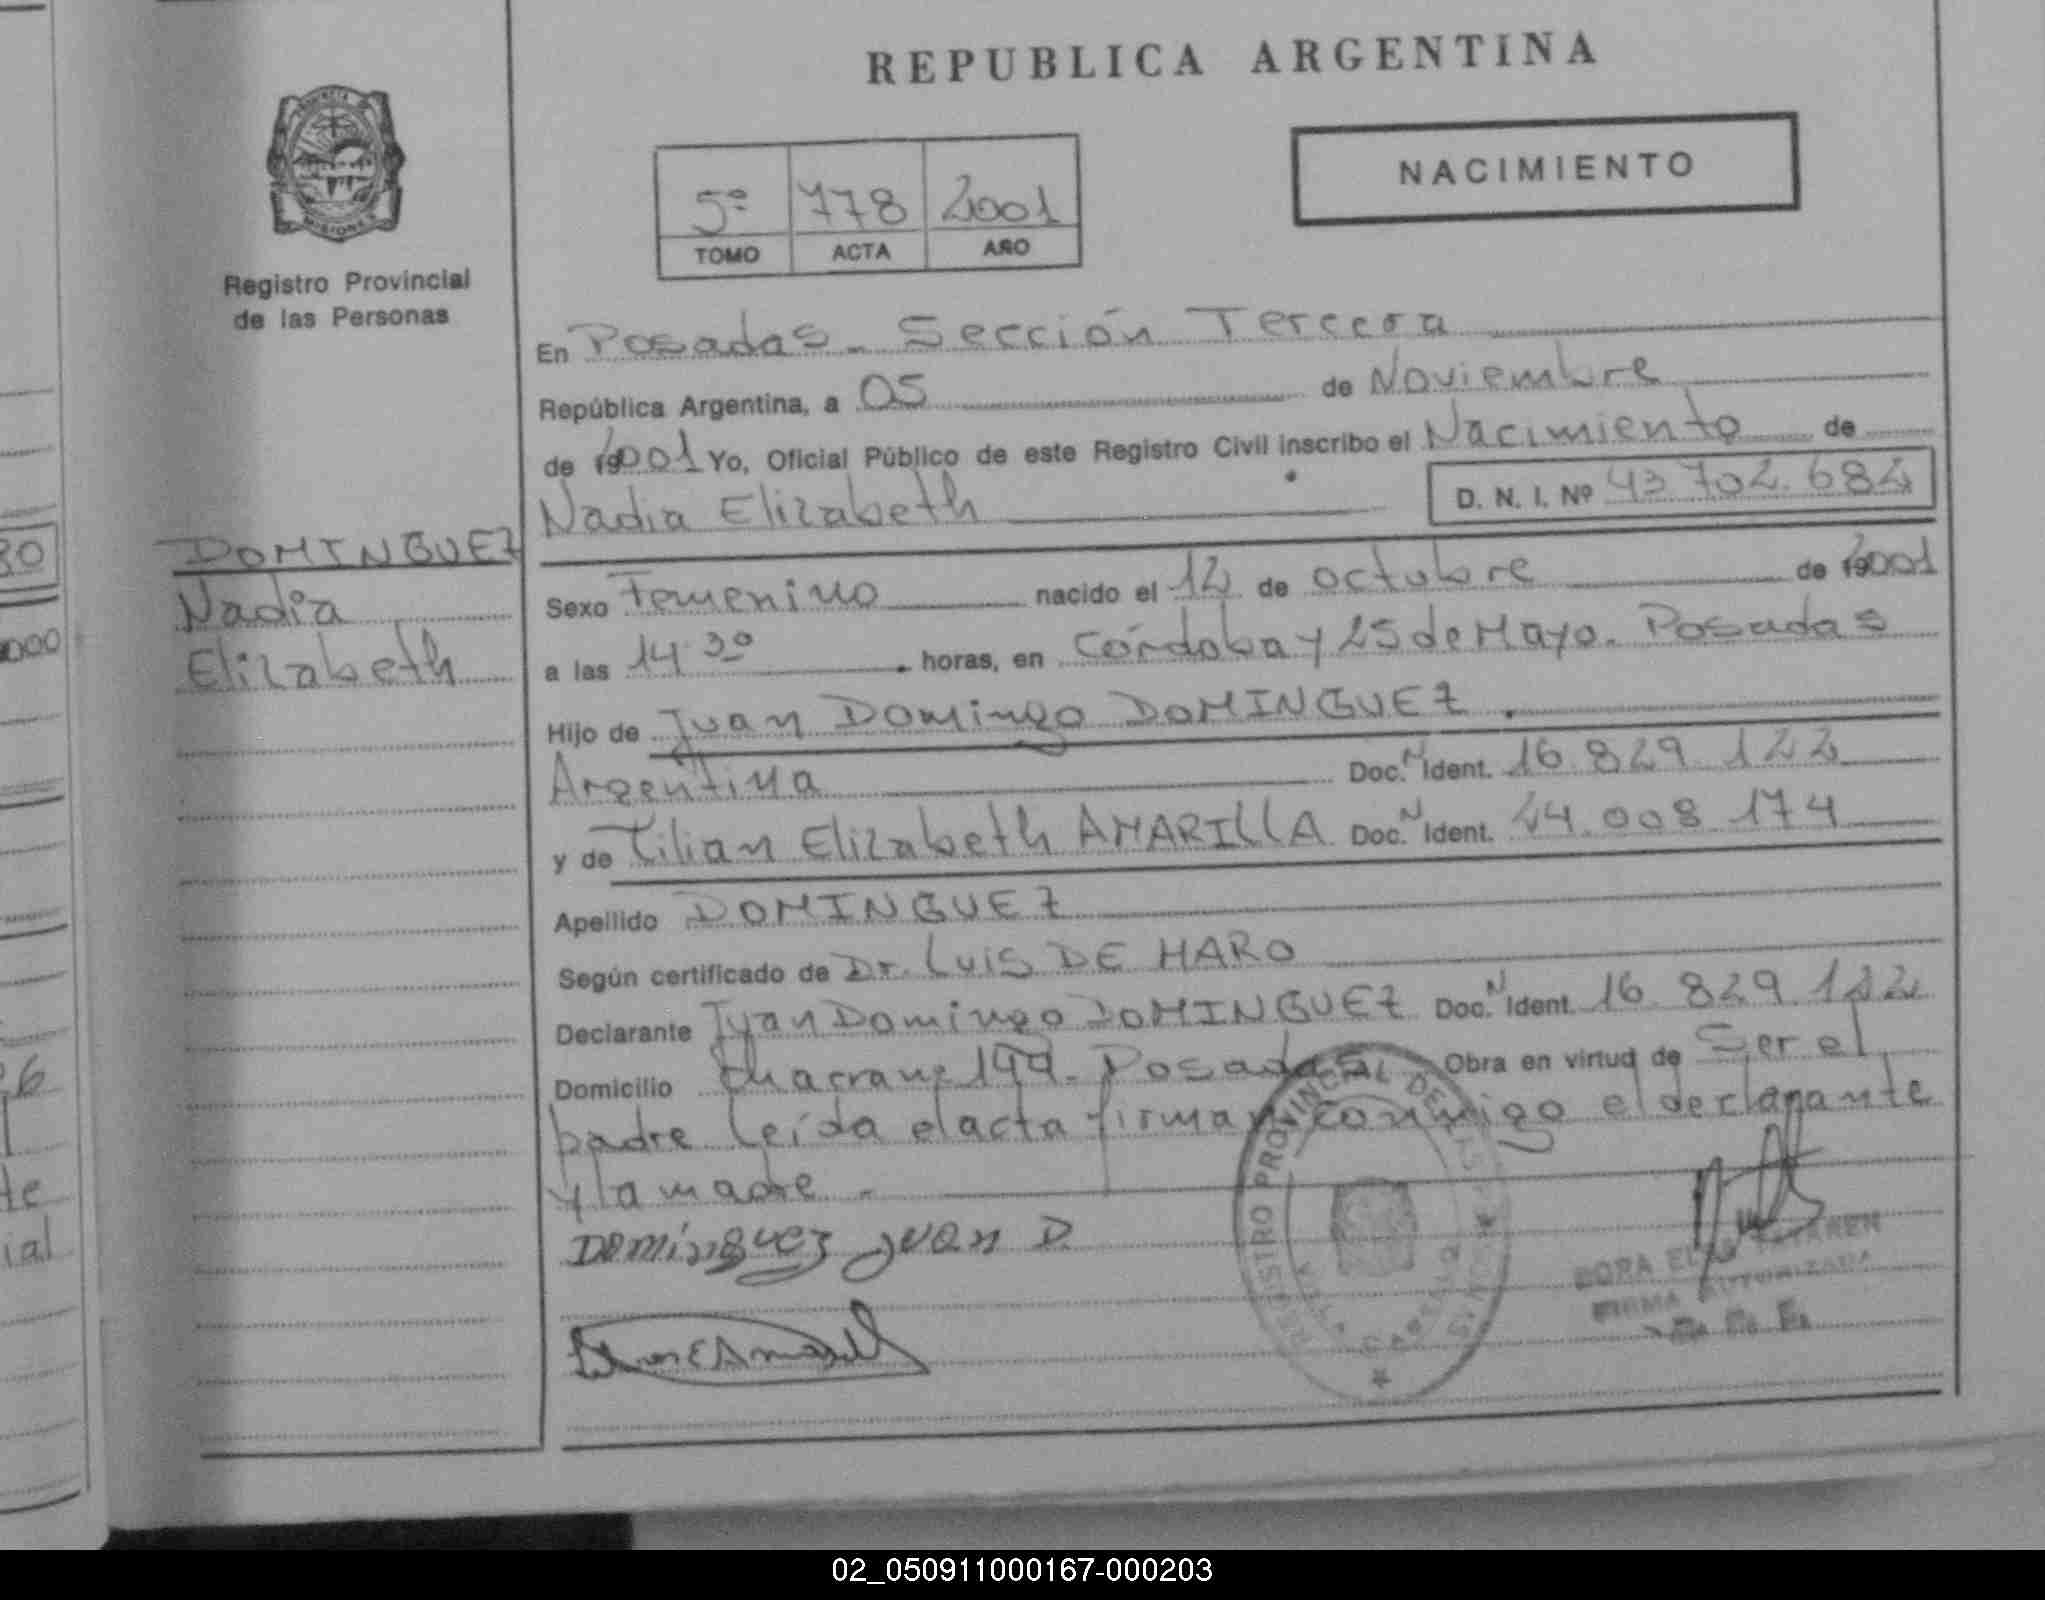 REPUBLICA ARGENTINA
PROVINCIA DE MISIONES
Registro Provincial
de las Personas
NACIMIENTO
5º 778 2001
TOMO ACTA AÑO
En Posadas - Sección Tercera
República Argentina, a 05 de Noviembre
de 2001 Yo, Oficial Público de este Registro Civil inscribo el Nacimiento de
Nadia Elizabeth D. N. I. Nº 43 702.684
DOMINGUEZ
Nadia
Elizabeth
Sexo Femenino nacido el 12 de octubre de 2001
a las 14 30 horas, en Córdoba y 25 de Mayo. Posadas
Hijo de Juan Domingo DOMINGUEZ
Argentina Doc. N Ident. 16 829 122
y de Lilian Elizabeth AMARILLA Doc. N Ident. 24 008 174
Apellido DOMINGUEZ
Según certificado de Dr. Luis DE HARO
Declarante Juan Domingo DOMINGUEZ Doc. N Ident. 16 829 122
Domicilio 199. Posadas Obra en virtud de Ser el
padre Leída el acta firman conmigo el declarante
y la madre -
Dominguez Juan D.
REGISTRO PROVINCIAL DE LAS PERSONAS
FIRMA AUTORIZADA
80
000
26
te
ial
02_050911000167-000203